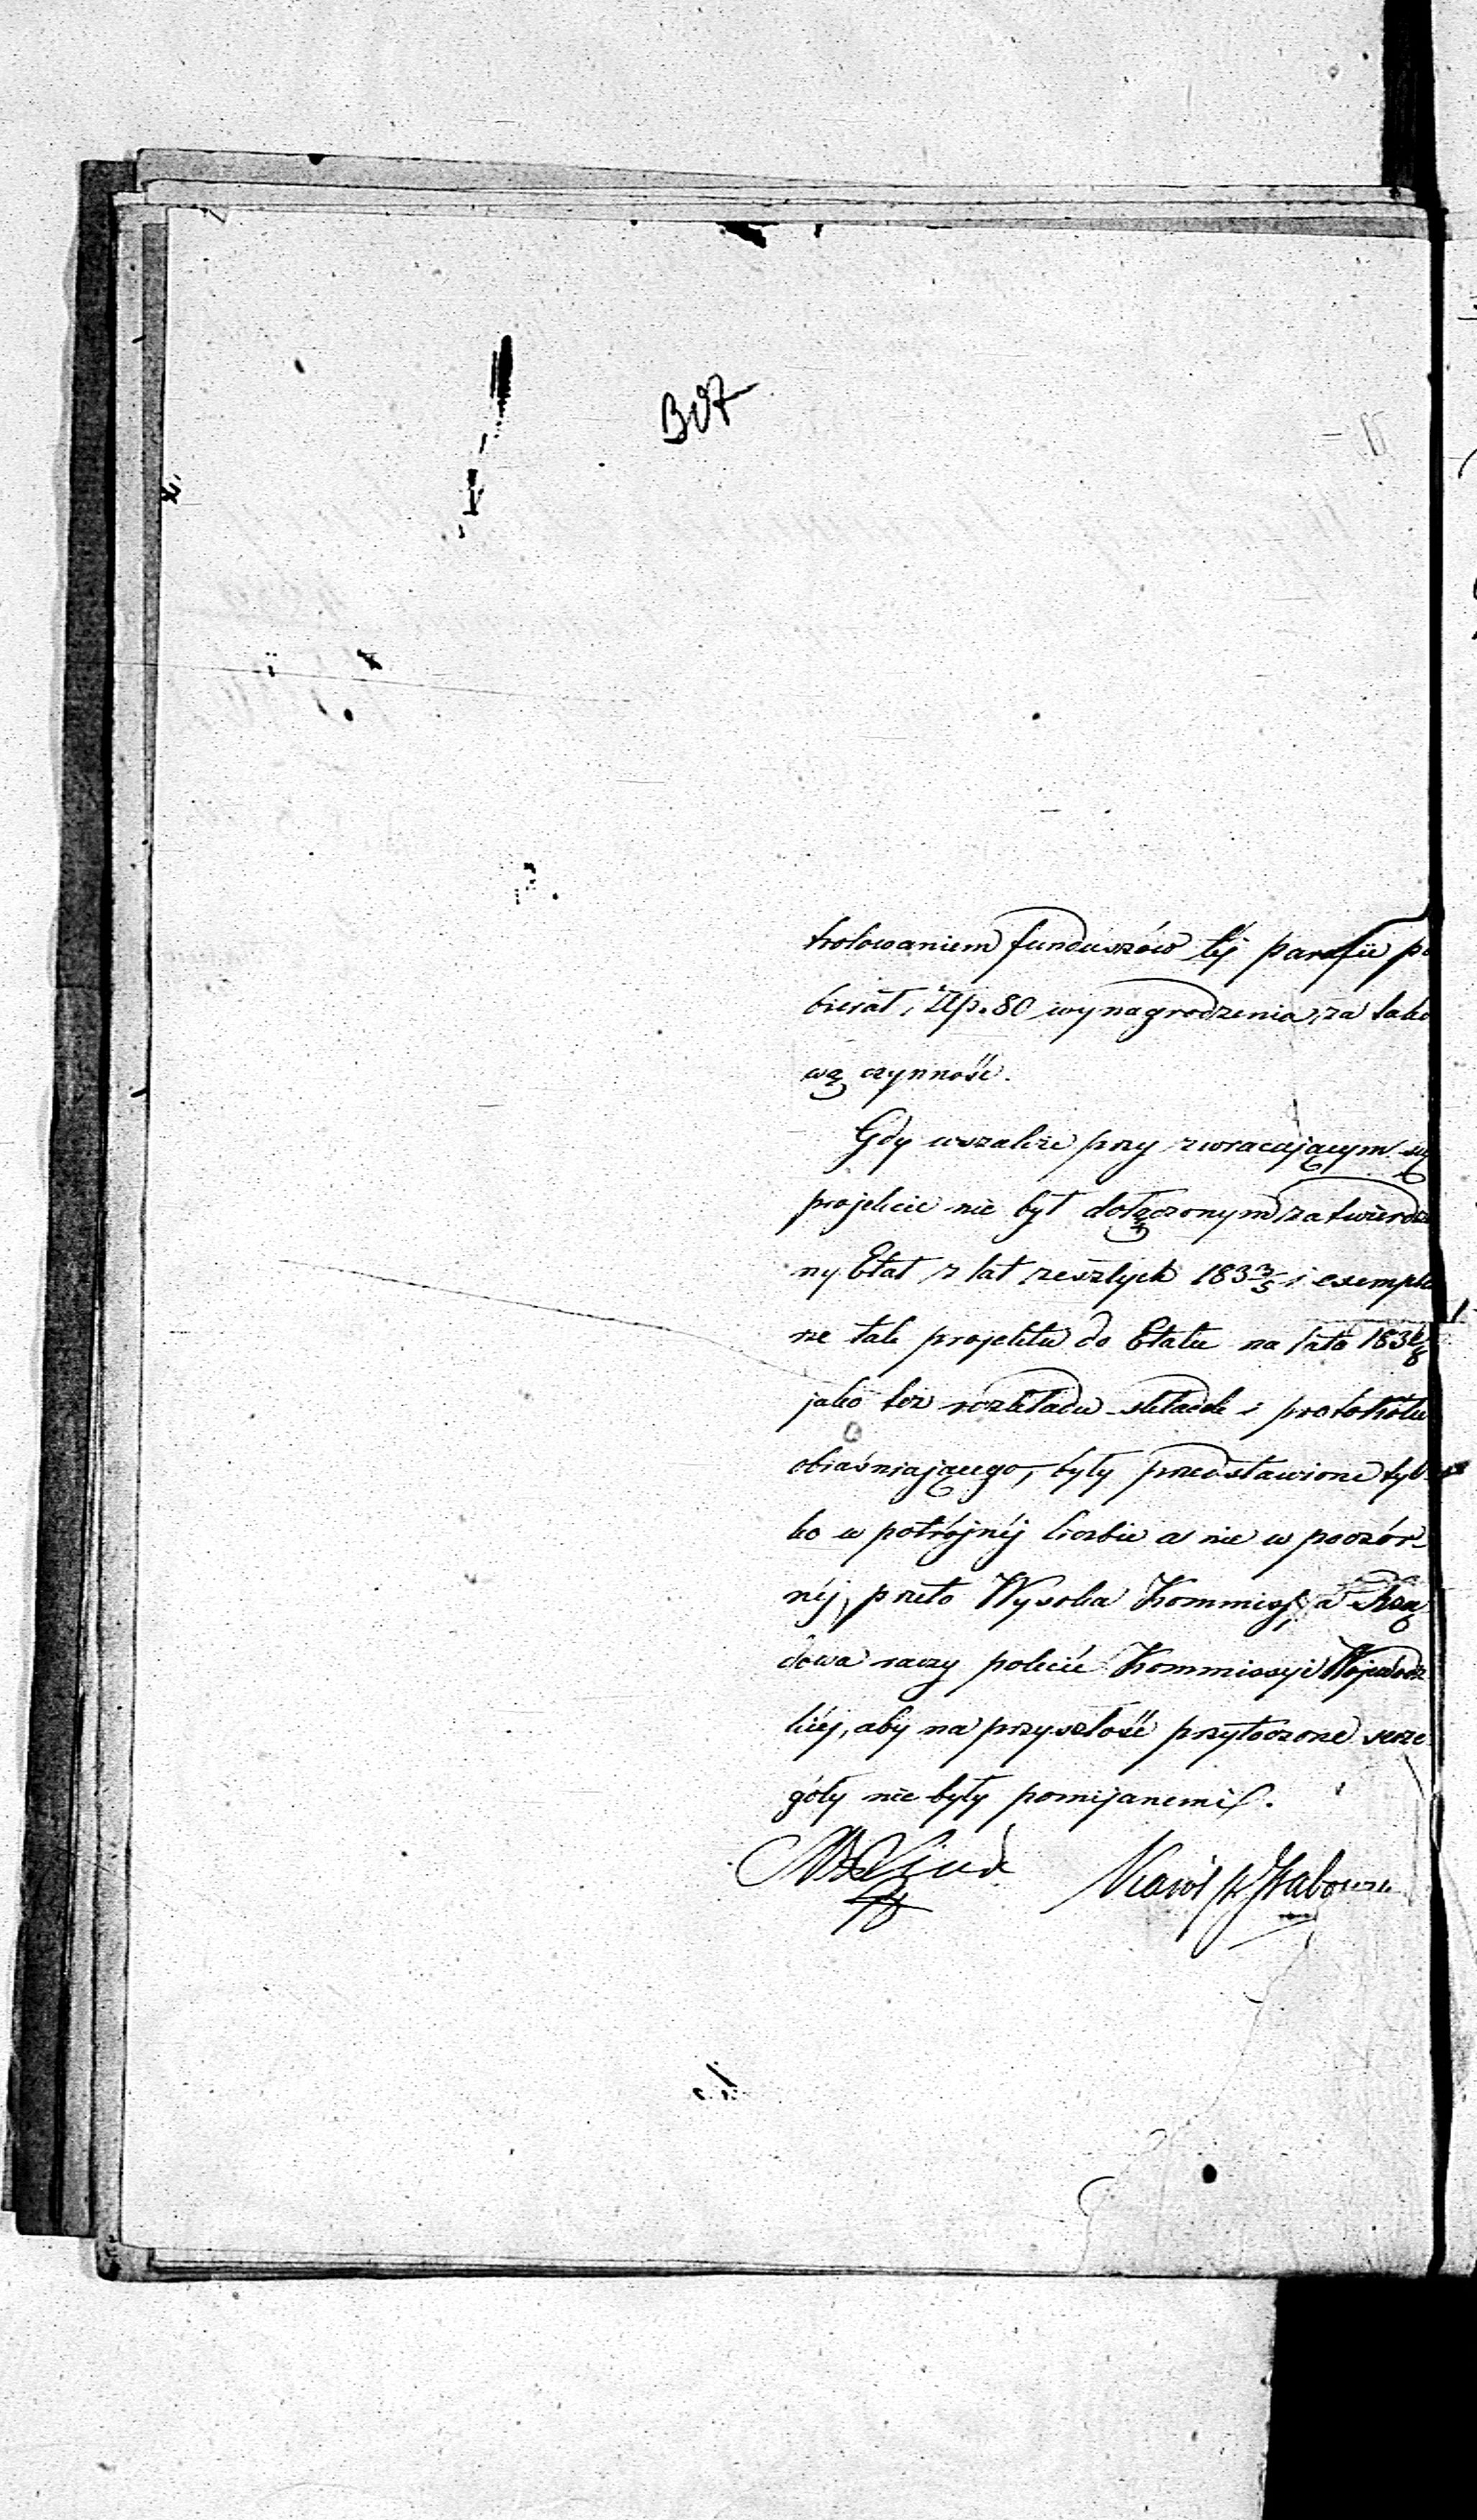 trolowaniem funduszów téj parafii po
bierał, Złp. 80 wynagrodzenia, za tako
wą czynność.
Gdy wszakże przy zwracającym się
projekcie nie był dołączonym zatwierdzo
ny Etat z lat zeszłych 183 3/5 i exempla
rze tak projektu do Etatu na lata 183 6/8
jako też rozkładu składek i protokółu
obiaśniającego, były przedstawione tyl-
ko w potrójnéj liczbie a nie w poczwór-
néj, przeto Wysoka Kommissya Rzą
dowa raczy polecić Kommissyi Wojewódz
kiéj, aby na przyszłość przytoczone szcze
góły nie były pomijanemi.
Karól